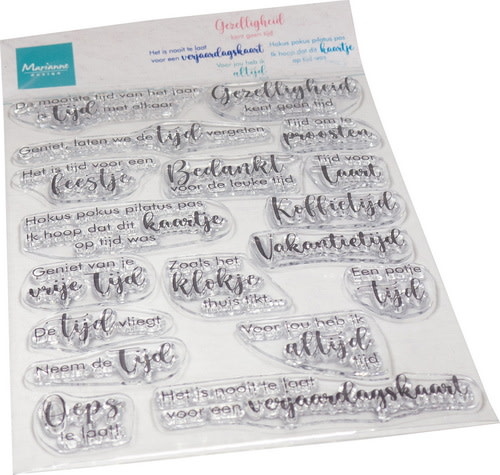 Gezelligheid
kent geen tijd
Het is nooit te laat
voor een verjaardagskaart
Hokus pokus pilatus pas
Ik hoop dat dit kaartje
op tijd was
Voor jou heb ik
altijd
Marianne
DESIGN
De mooiste tijd van het jaar
is tijd met elkaar
Gezelligheid
kent geen tijd
Geniet, laten we de tijd vergeten
Tijd om te
proosten
Het is tijd voor een
feestje
Bedankt
voor de leuke tijd
Tijd voor
taart
Hokus pokus pilatus pas
Ik hoop dat dit kaartje
op tijd was
Koffietijd
Vakantietijd
Geniet van je
vrije tijd
Zoals het
klokje
thuis tikt...
Een potje
tijd
De tijd vliegt
Voor jou heb ik
altijd
tijd
Neem de tijd
Oeps
te laat!
Het is nooit te laat
voor een verjaardagskaart